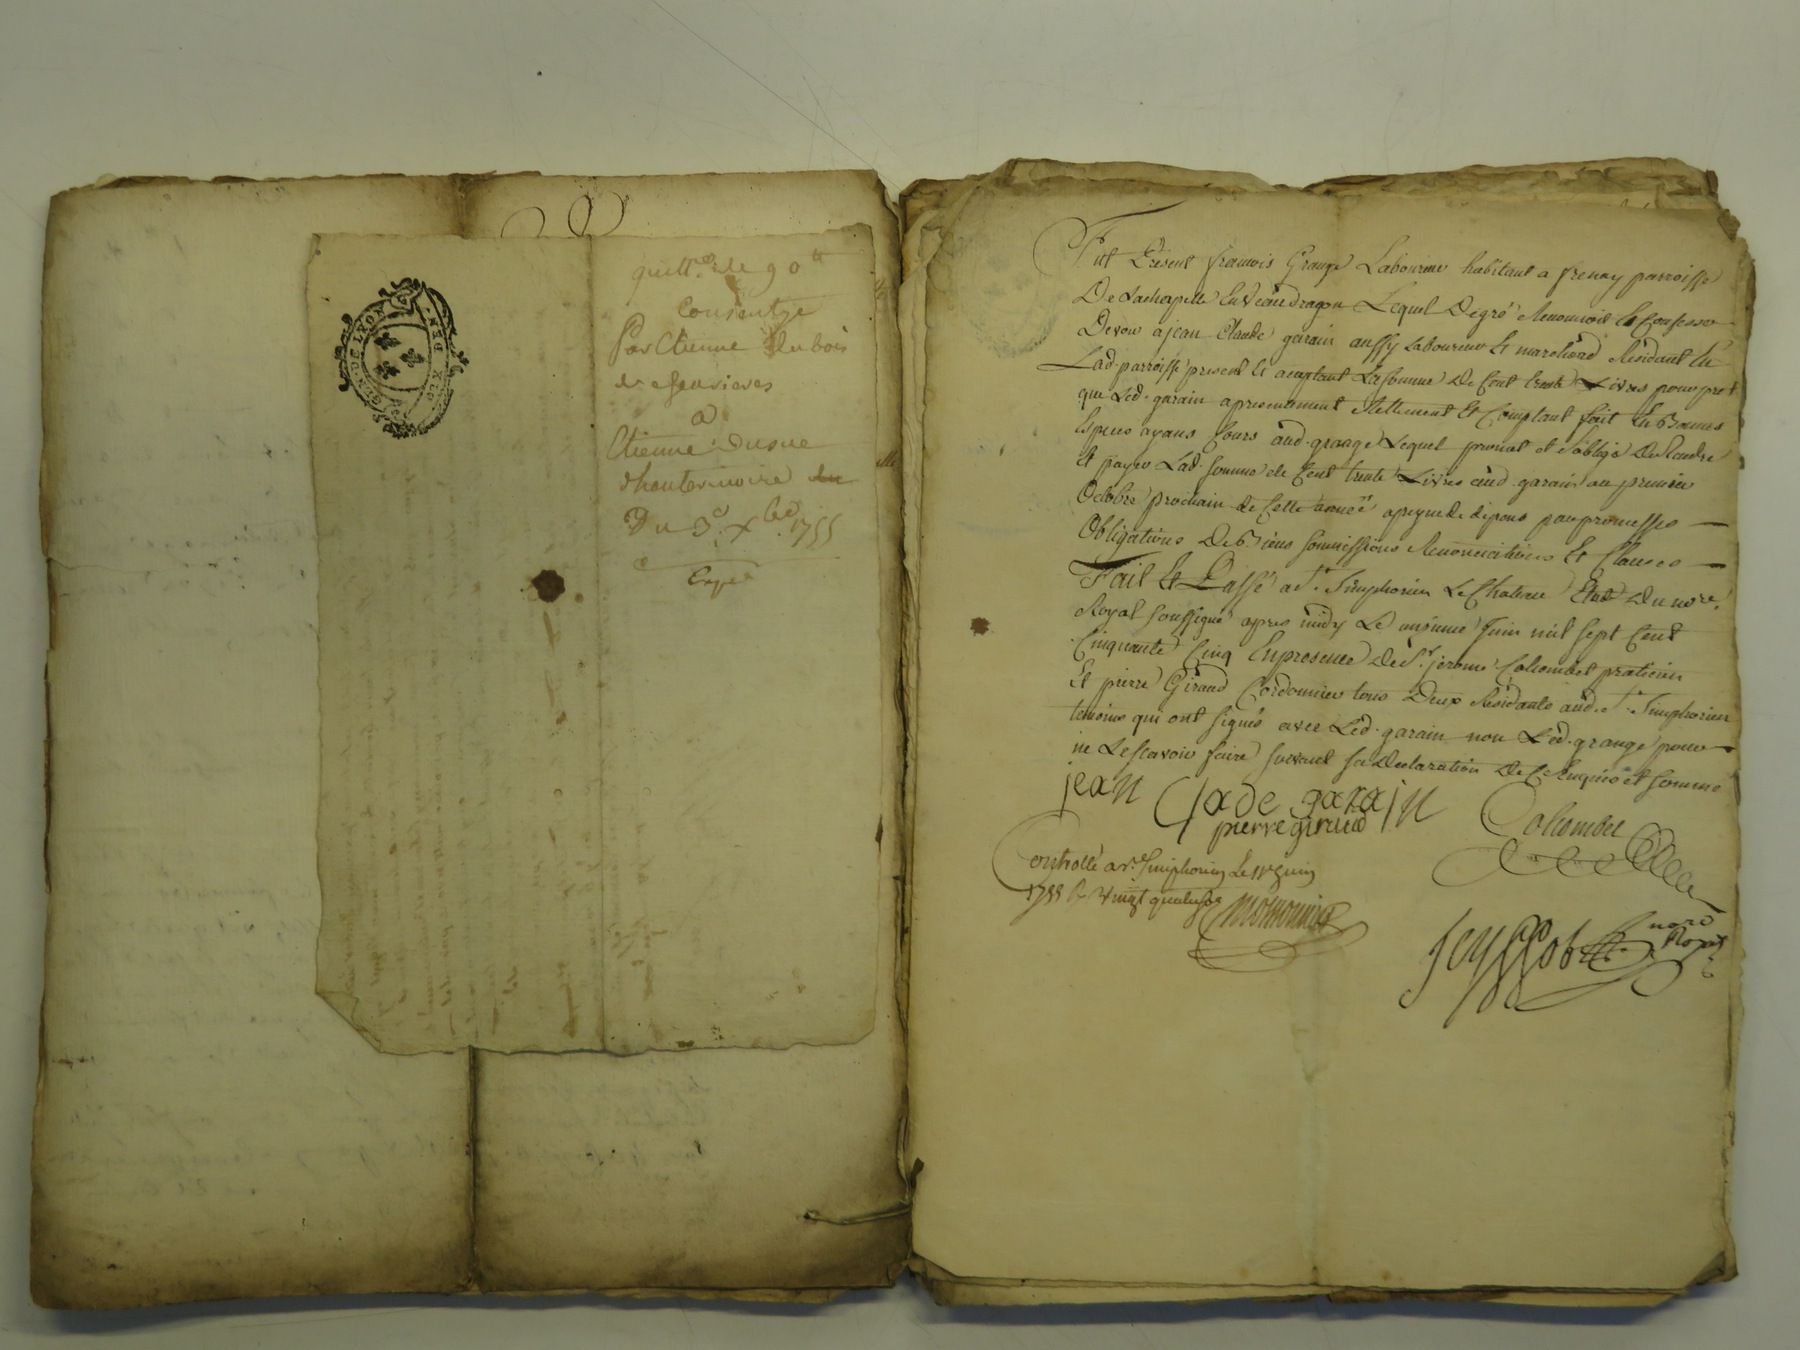 GEN. DE LYON
quitt.ce de 90 tt
Consentye
Par Etienne Dubois
de
a
Etienne
d'hauterivoire
Du 3.e Xbre 1755
Fut Présent francois Grange Laboureur habitant a frenay parroisse
De Lachapelle En Lequel De gré Reconnoit Et Confesse
Devoir a jean Claude garain aussy Laboureur Et marchand Résidant En
Lad. parroisse present Et acceptant La somme De Cent trente Livres pour pret
que Led. garain a presentement Réellement Et Comptant fait En Bonnes
Especes ayans Cours aud. grange Lequel promet et s'oblige De Rendre
Et payer Lad. somme de Cent trente Livres aud. garain au premier
Octobre prochain de Cette année a peyne de dépens par promesses
Obligations De Biens soumissions Renonciations Et Clauses
Fait Et Passé a St. Simphorien Le Chateau Etude Du nore.
Royal soussigné apres midy Le onzieme Juin mil sept Cent
Cinquante Cinq En presence De Sr. jerome Cohombet praticien
Et pierre Giraud Cordonnier tous Deux Résidants aud. St. Simphorien
temoins qui ont signés avec Led. garain non Led. grange pour
ne Le scavoir faire suivant sa Declaration De Ce Enquis et sommé
jean Clade garain
pierre giraud
Cohombet
Controllé a St. Simphorien Le 11e Juin
1755 R. Vingt quatre s.
nore
Royal